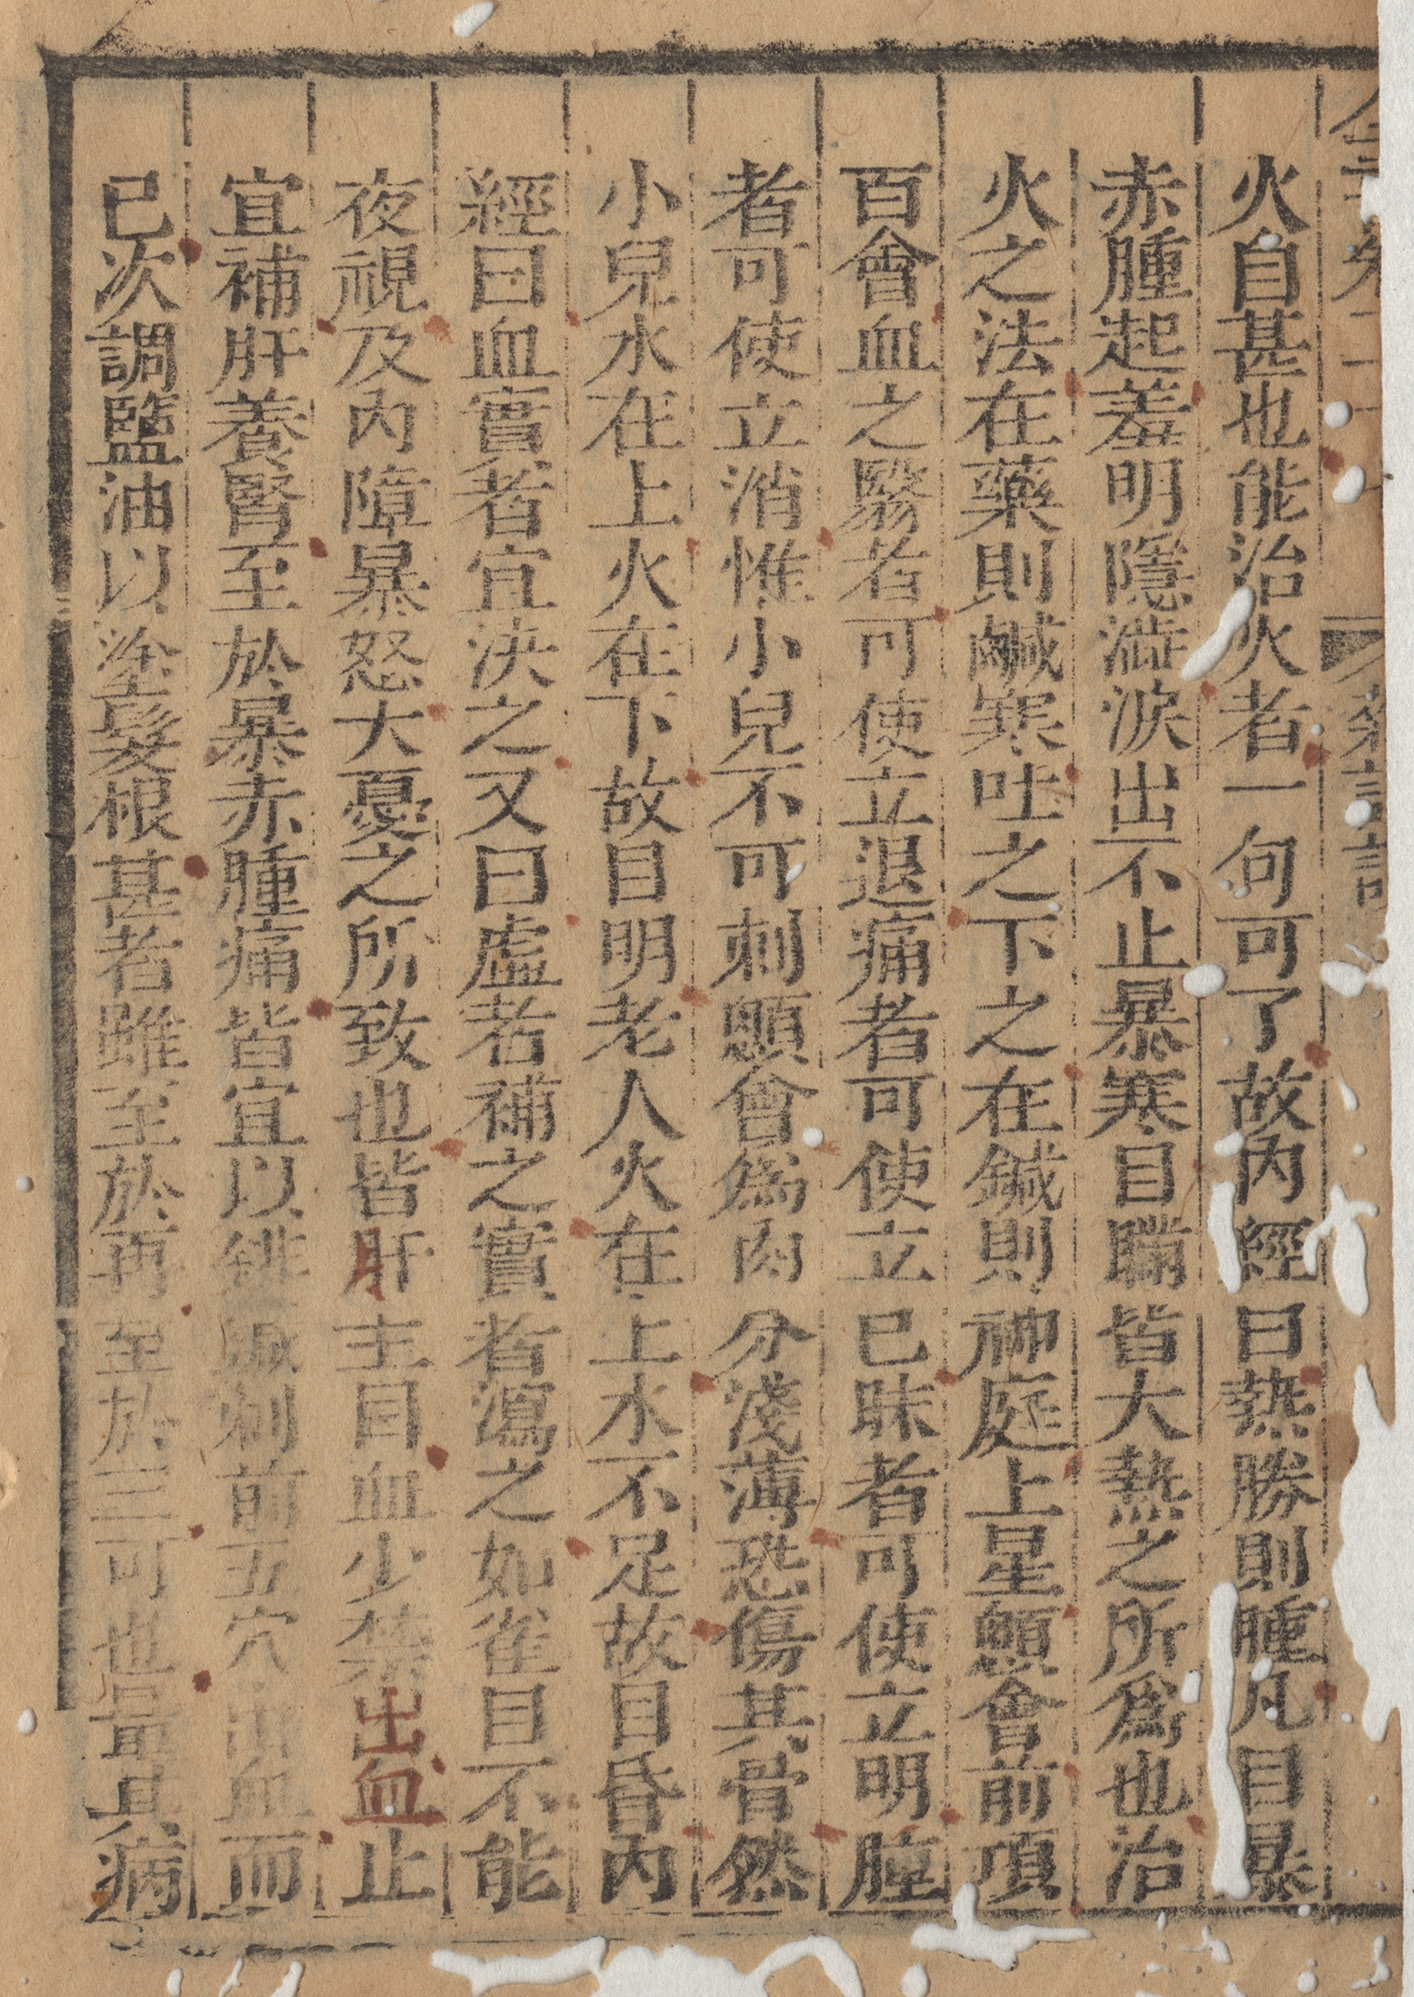 火自甚也能治火者一句可了故內經曰熱勝則腫凡目暴
赤腫起羞明隱澁淚出不止暴寒目瞒皆大熱之所爲也治
火之法在藥則鹹寒吐之下之在鍼則神庭上星顖會前項
百會血之翳者可使立退痛者可使立已昧者可使立明腫
者可使立消惟小兒不可刺顖會爲肉分淺薄恐傷其骨然
小兒水在上火在下故目明老人火在上水不足故目昏內
經曰血實者宜決之又曰虛者補之實者瀉之如雀目不能
夜視及內障暴怒大憂之所致也皆肝主目血少禁出血止
宜補肝養腎至於暴赤腫痛皆宜以鍼刺前五穴出血而
已次調鹽油以塗髮根甚者雖至於再至於三可也最其病